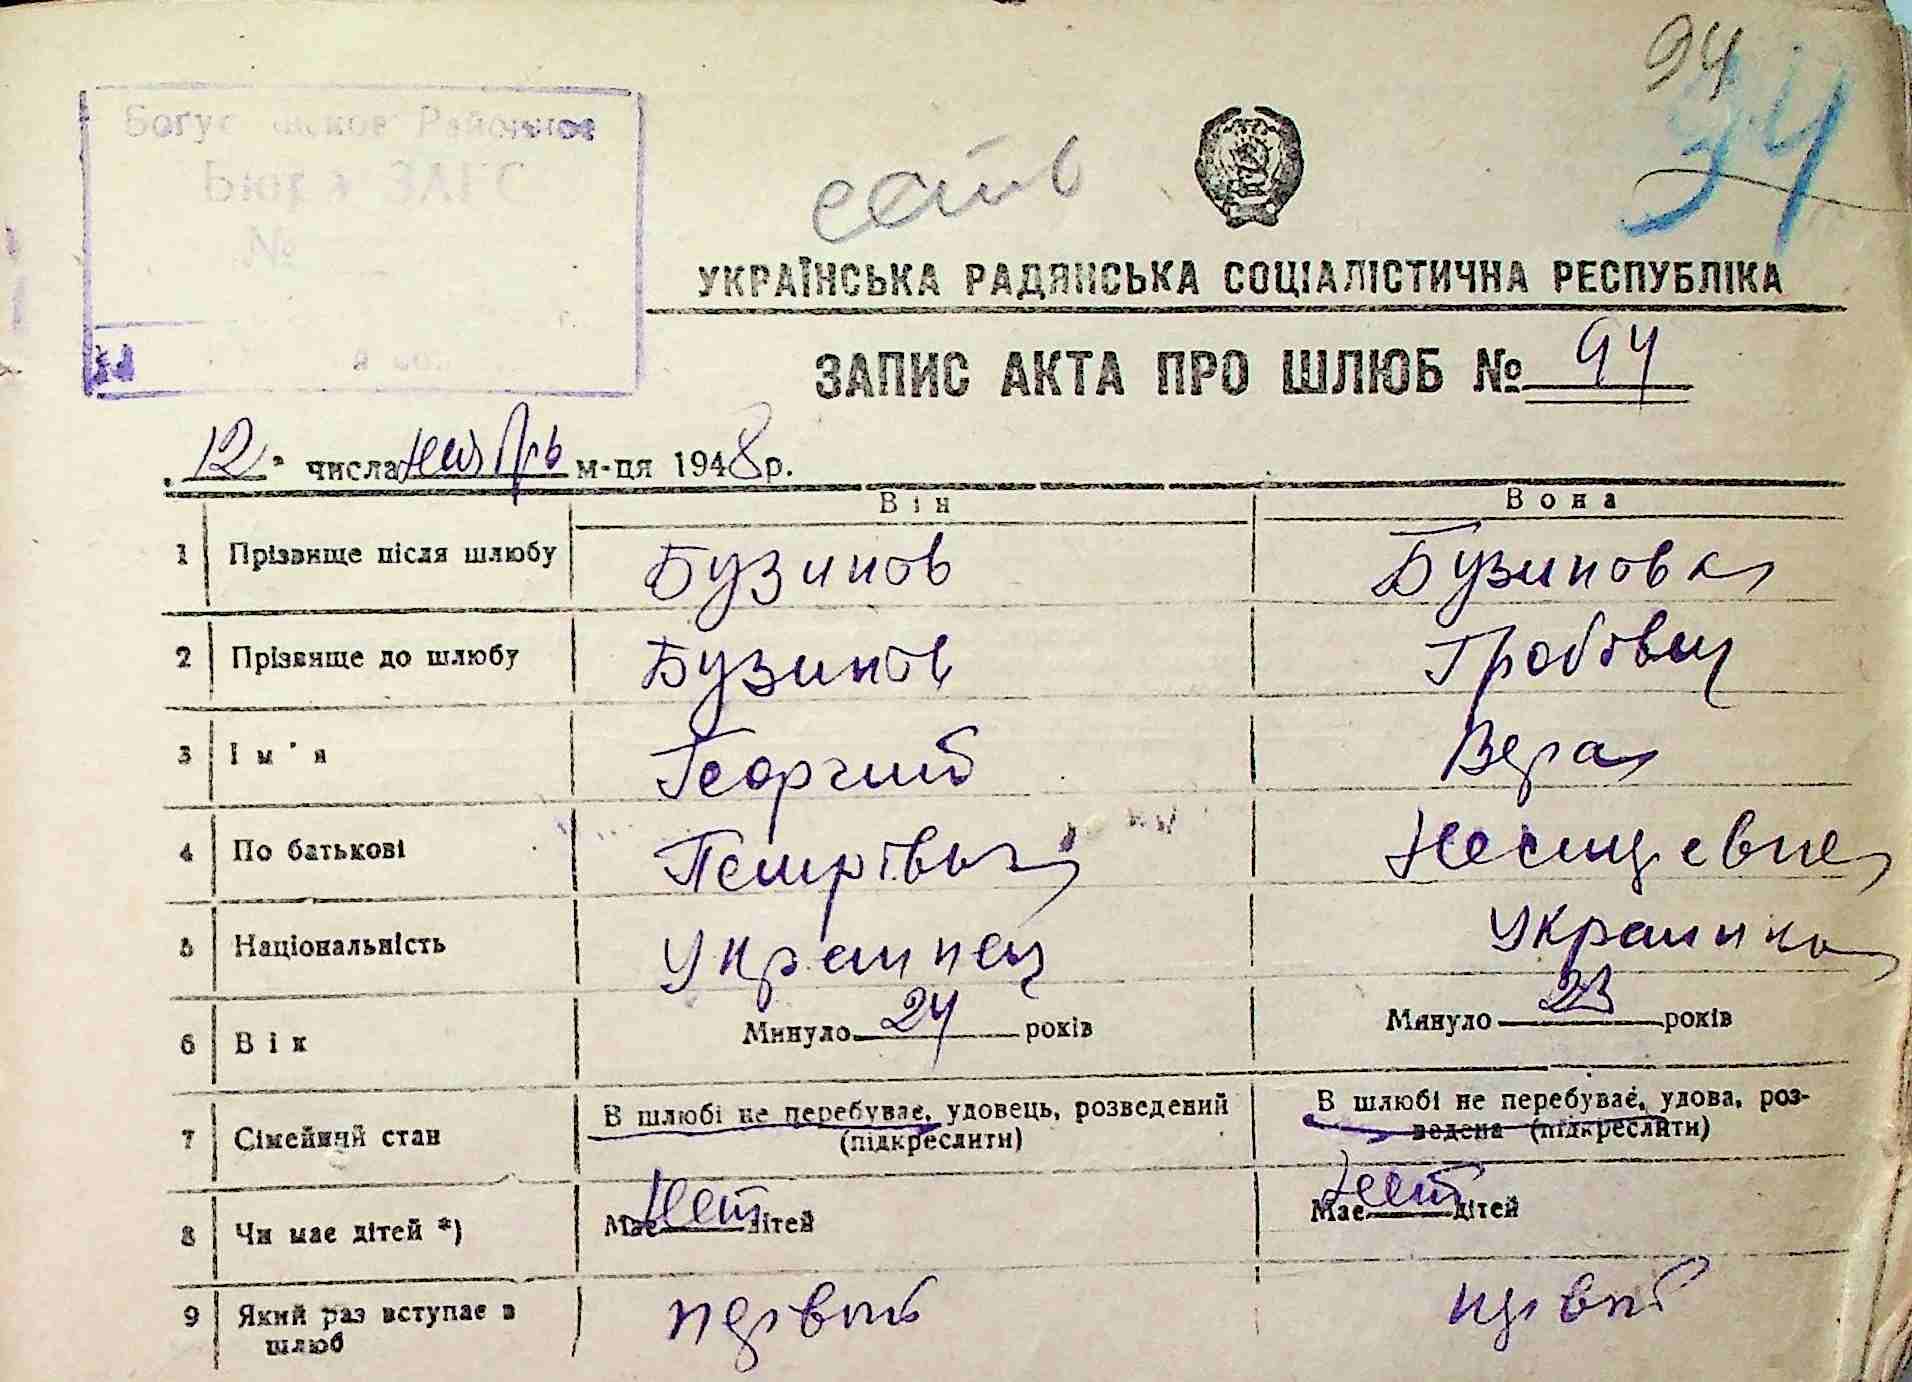 94
34
Районное
Бюро ЗАГС
№
есть
УКРАЇНСЬКА РАДЯНСЬКА СОЦІАЛІСТИЧНА РЕСПУБЛІКА
ЗАПИС АКТА ПРО ШЛЮБ № 94
12 числа ноябрь м-ця 1948 р.
Він Вона
1 Прізвище після шлюбу Бузинов Бузинова
2 Прізвище до шлюбу Бузинов
3 Ім'я Георгий Вера
4 По батькові Петрович
5 Національність Украинец Украинка
6 Вік Минуло 24 років Минуло 23 років
7 Сімейний стан В шлюбі не перебуває, удовець, розведений (підкреслити) В шлюбі не перебуває, удова, роз-
ведена (підкреслити)
8 Чи має дітей *) Має нет дітей Має нет дітей
9 Який раз вступає в
шлюб